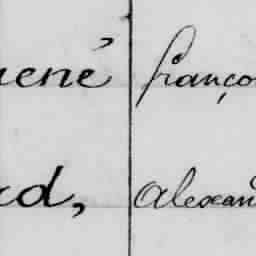 ené franço
rd, Alexan